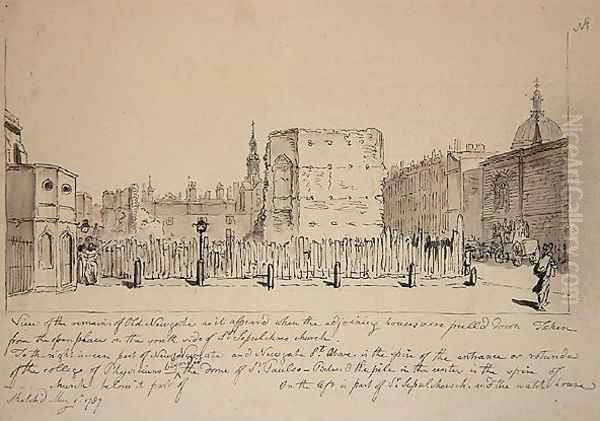 View of the remains of Old Newgate as it appeared when the adjoining houses were pulled down Taken
from the open space on the south side of St Sepulchres church.
To the right is seen part of Newgate and Newgate St. Above is the spire of the entrance or rotunda
of the college of Physicians and the dome of St Pauls & the pile in the center is the spire of
church below it part of On the left is part of St Sepulchres ch. and the watch house
Sketch'd May 1789
NiceArtGallery.com